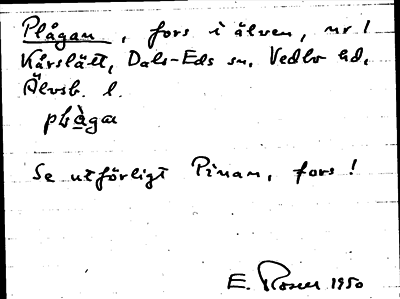 Plågan, fors i älven, nr 1
Kårslätt, Dals-Eds sn, Vedbo hd,
Älvsb. l.
plågα
Se utförligt Pinan, fors!
E. Rosell 1950